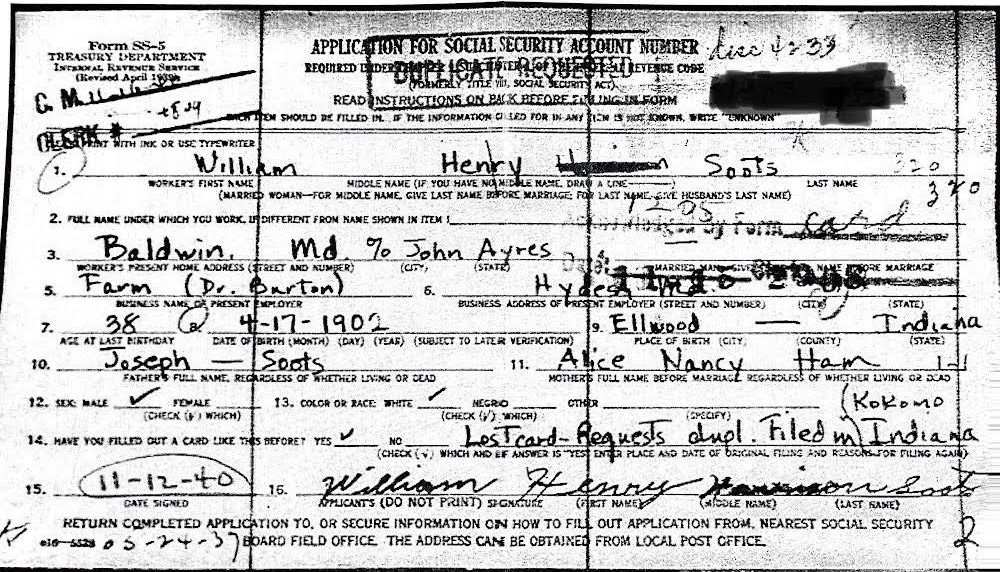 Form SS-5
TREASURY DEPARTMENT
INTERNAL REVENUE SERVICE
(Revised April 1940)
APPLICATION FOR SOCIAL SECURITY ACCOUNT NUMBER
REQUIRED UNDER REVENUE CODE
(FORMERLY TITLE VIII, SOCIAL SECURITY ACT)
DUPLICATE REQUESTED
READ INSTRUCTIONS ON BACK BEFORE FILLING IN FORM
CLERK #
EACH ITEM SHOULD BE FILLED IN. IF THE INFORMATION CALLED FOR IN ANY ITEM IS NOT KNOWN, WRITE "UNKNOWN"
PRINT WITH INK OR USE TYPEWRITER
1. William Henry Soots 320
WORKER'S FIRST NAME MIDDLE NAME (IF YOU HAVE NO MIDDLE NAME, DRAW A LINE——) LAST NAME
320
(MARRIED WOMAN—FOR MIDDLE NAME, GIVE LAST NAME BEFORE MARRIAGE; FOR LAST NAME, GIVE HUSBAND'S LAST NAME)
2. FULL NAME UNDER WHICH YOU WORK, IF DIFFERENT FROM NAME SHOWN IN ITEM 1 By Form card
3. Baldwin, Md. % John Ayres
WORKER'S PRESENT HOME ADDRESS (STREET AND NUMBER) (CITY) (STATE) 4. MARRIED NAME BEFORE MARRIAGE
5. Farm (Dr. Burton) 6. Hydes Md.
BUSINESS NAME OF PRESENT EMPLOYER BUSINESS ADDRESS OF PRESENT EMPLOYER (STREET AND NUMBER) (CITY) (STATE)
7. 38 8. 4-17-1902 9. Ellwood — Indiana
AGE AT LAST BIRTHDAY DATE OF BIRTH (MONTH) (DAY) (YEAR) (SUBJECT TO LATER VERIFICATION) PLACE OF BIRTH (CITY) (COUNTY) (STATE)
10. Joseph — Soots 11. Alice Nancy Ham
FATHER'S FULL NAME, REGARDLESS OF WHETHER LIVING OR DEAD MOTHER'S FULL NAME BEFORE MARRIAGE, REGARDLESS OF WHETHER LIVING OR DEAD
12. SEX: MALE ✓ FEMALE 13. COLOR OR RACE: WHITE ✓ NEGRO OTHER (Kokomo
(CHECK (✓) WHICH) (CHECK (✓) WHICH) (SPECIFY)
14. HAVE YOU FILLED OUT A CARD LIKE THIS BEFORE? YES ✓ NO Lost card - Requests dupl. Filed in Indiana
(CHECK (✓) WHICH AND IF ANSWER IS "YES" ENTER PLACE AND DATE OF ORIGINAL FILING AND REASONS FOR FILING AGAIN)
15. 11-12-40 16. William Henry Harrison Soots
DATE SIGNED APPLICANT'S (DO NOT PRINT) SIGNATURE (FIRST NAME) (MIDDLE NAME) (LAST NAME)
RETURN COMPLETED APPLICATION TO, OR SECURE INFORMATION ON HOW TO FILL OUT APPLICATION FROM, NEAREST SOCIAL SECURITY 2
05-24-37 BOARD FIELD OFFICE. THE ADDRESS CAN BE OBTAINED FROM LOCAL POST OFFICE.